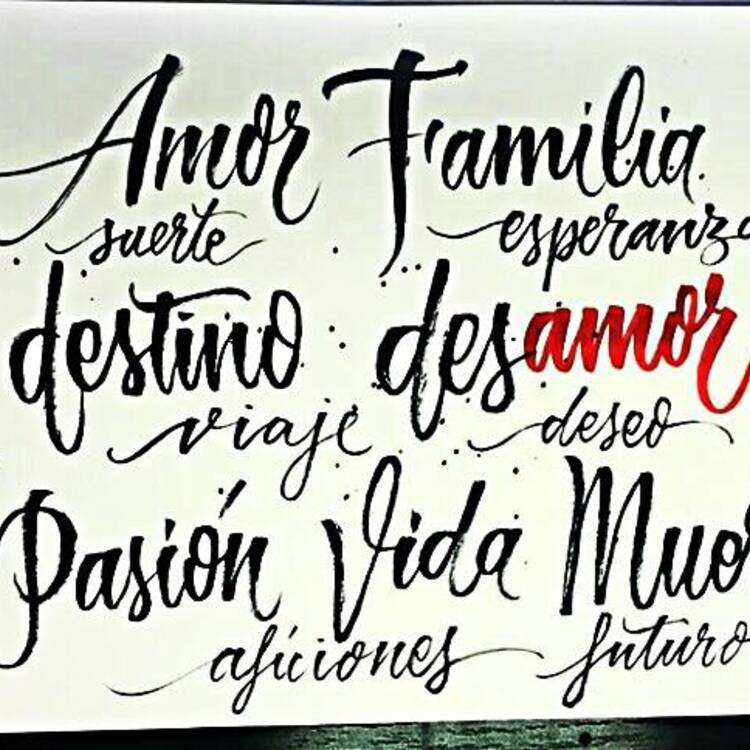 Amor Familia
suerte esperanza
destino desamor
viaje deseo
Pasión Vida Mue
aficiones futuro